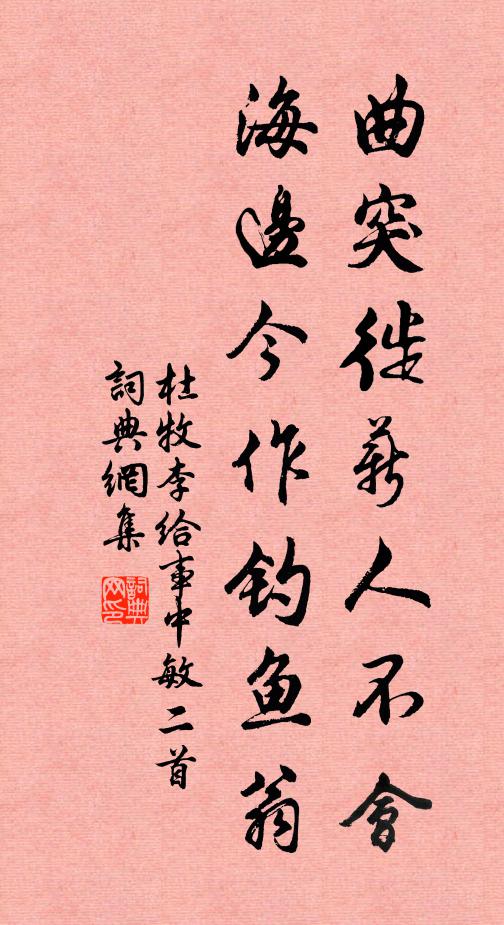 曲突徙薪人不會
海邊今作釣魚翁
杜牧李給事中敏二首
詞典網集
詞典網印